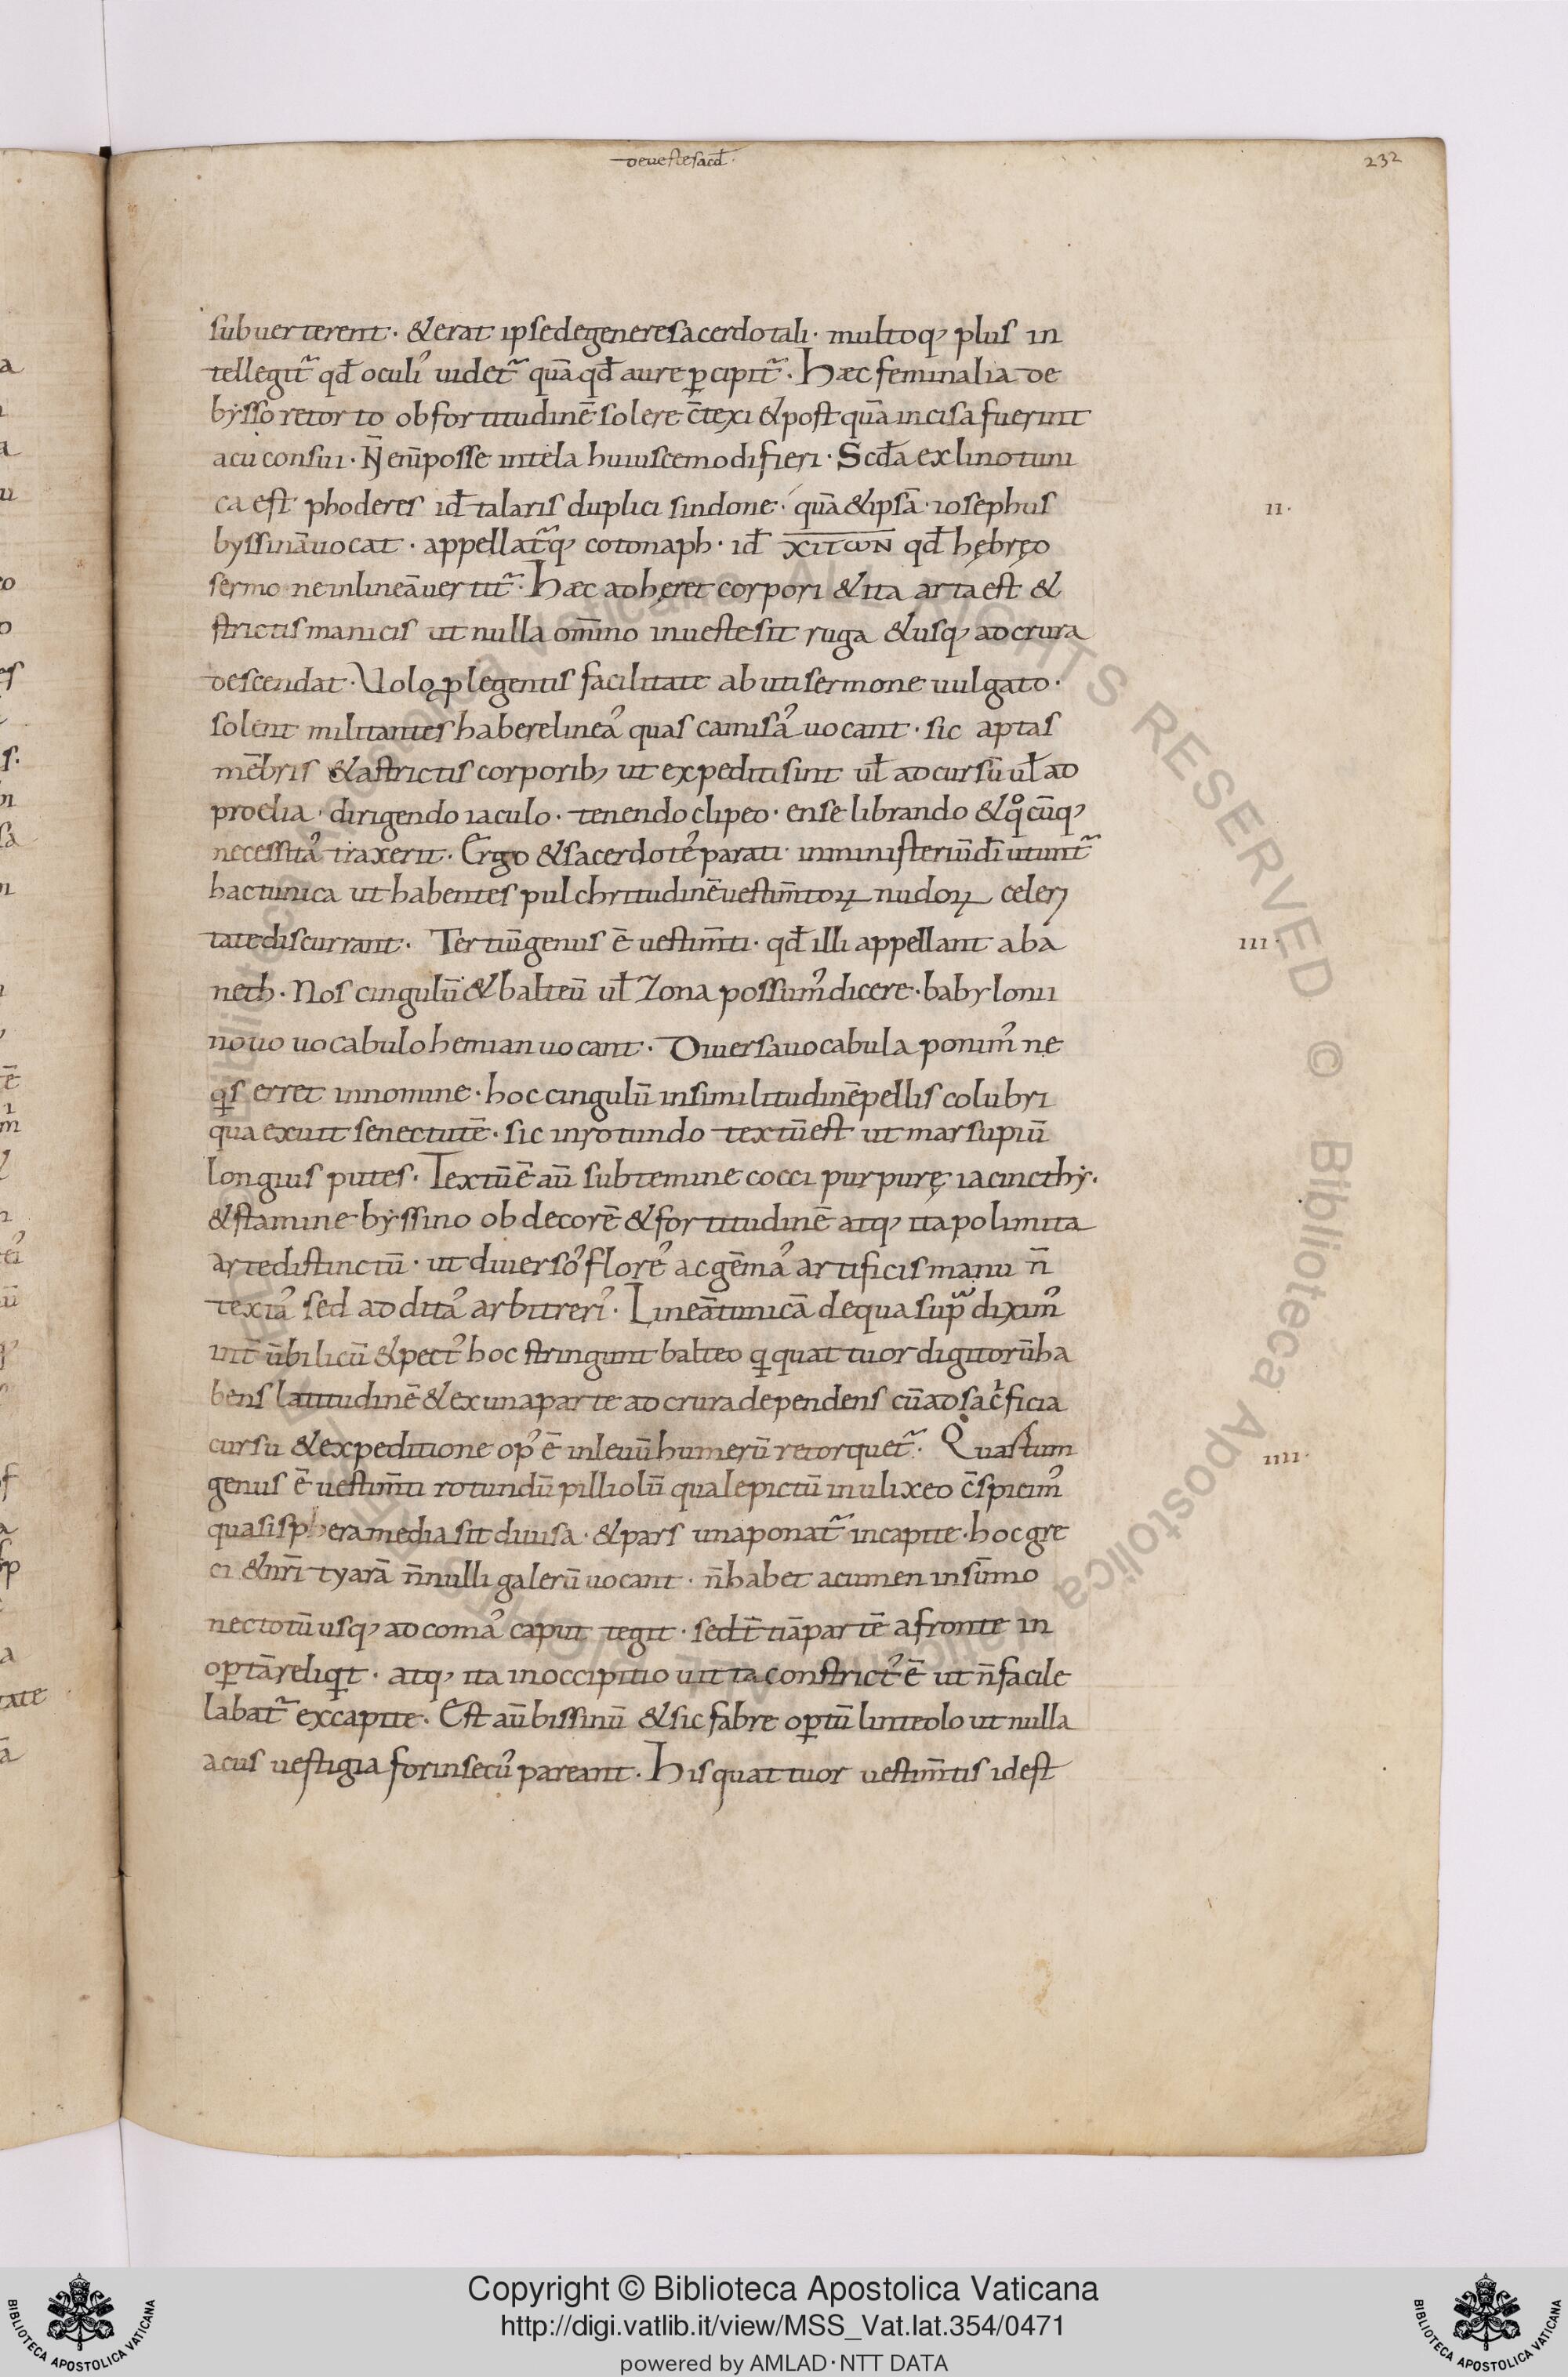 deueste sacd̄·
232
subuerterent· & erat ipse de genere sacerdotali· multoq; plus in
tellegit᷑ qđ oculi᾽ uidet᷑ quā qđ aure ꝑcipit᷑· Haec feminalia de
bysso retorto ob fortitudinē solere c̄texi & post quā incisa fuerint
acu consui· N̄ eni̅ posse in tela huiuscemodi fieri· Scđa ex lino tuni
ca est phoderes iđ talaris duplici sindone· quā & ipsā· iosephus
II·
byssinā uocat· appellat᷑q; cotonaph· iđ χιτωΝ qđ hębręo
sermone in lineā uertit᷑· Haec adhęret corpori & ita arta est &
strictis manicis ut nulla om̄ino in ueste sit ruga & usq; ad crura
descendat· Volo ꝓ legentis facilitate abuti sermone uulgato·
solent militantes habere linea᾽ quas camisa᾽ uocant· sic aptas
mēbris & astrictis corporib; ut expediti sint uł ad cursū uł ad
proelia· dirigendo iaculo· tenendo clipeo· ense librando & qͦcūq;
necessita᾽ traxerit· Ergo & sacerdote᾽ parati· in ministeriū dī utunt᷑
hac tunica ut habentes pulchritudinē uestim̄toꝝ nudoꝝ celeri
tate discurrant· Tertiū genus ē uestim̄ti· qđ illi appellant aba
III·
neth· Nos cingulū & balteū uł zona possum᾽ dicere· babylonii
nouo uocabulo hemian uocant· Diuersa uocabula ponim᾽ ne
qis erret in nomine· hoc cingulū in similitudinē pellis colubri
qua exuit senectutē· sic in rotundo textū est ut marsupiū
longius putes· Textū ē aū subtemine cocci purpurę iacincthy·
& stamine byssino ob decorē & fortitudinē atq; ita polimita
arte distinctū· ut diuerso᾽ flore᾽ ac gēma᾽ artificis manu n̄
texta᾽ sed addita᾽ arbitreri᾽· Lineā tunicā de qua supᷓ dixim᾽
int̄ ūbilicū & pect᾽ hoc stringunt balteo qi quattuor digitorū ha
bens latitudinē & ex una parte ad crura dependens cū ad sac̄ficia
cursu & expeditione op᾽ ē in leuū humerū retorquet᷑· Quartum
IIII·
genus ē uestim̄ti rotundū pilliolū quale pictū in ulixeo c̄spicim᾽
quasi sphera media sit diuisa· & pars una ponat᷑ in capite· hoc gre
ci & nr̄i tyarā n̄nulli galerū uocant· n̄ habet acumen in sūmo
nec totū usq; ad coma᾽ caput tegit· sed t̄tiā partē a fronte in
oꝑtā reliqit· atq; ita in occipitio uitta constrict᾽ ē ut n̄ facile
labat᷑ ex capite· Est aū bissinū & sic fabre oꝑtū linteolo ut nulla
acus uestigia forinsecu᾽ pareant· His quattuor uestim̄tis id est
Copyright © Biblioteca Apostolica Vaticana
http://digi.vatlib.it/view/MSS_Vat.lat.354/0471
powered by AMLAD·NTT DATA